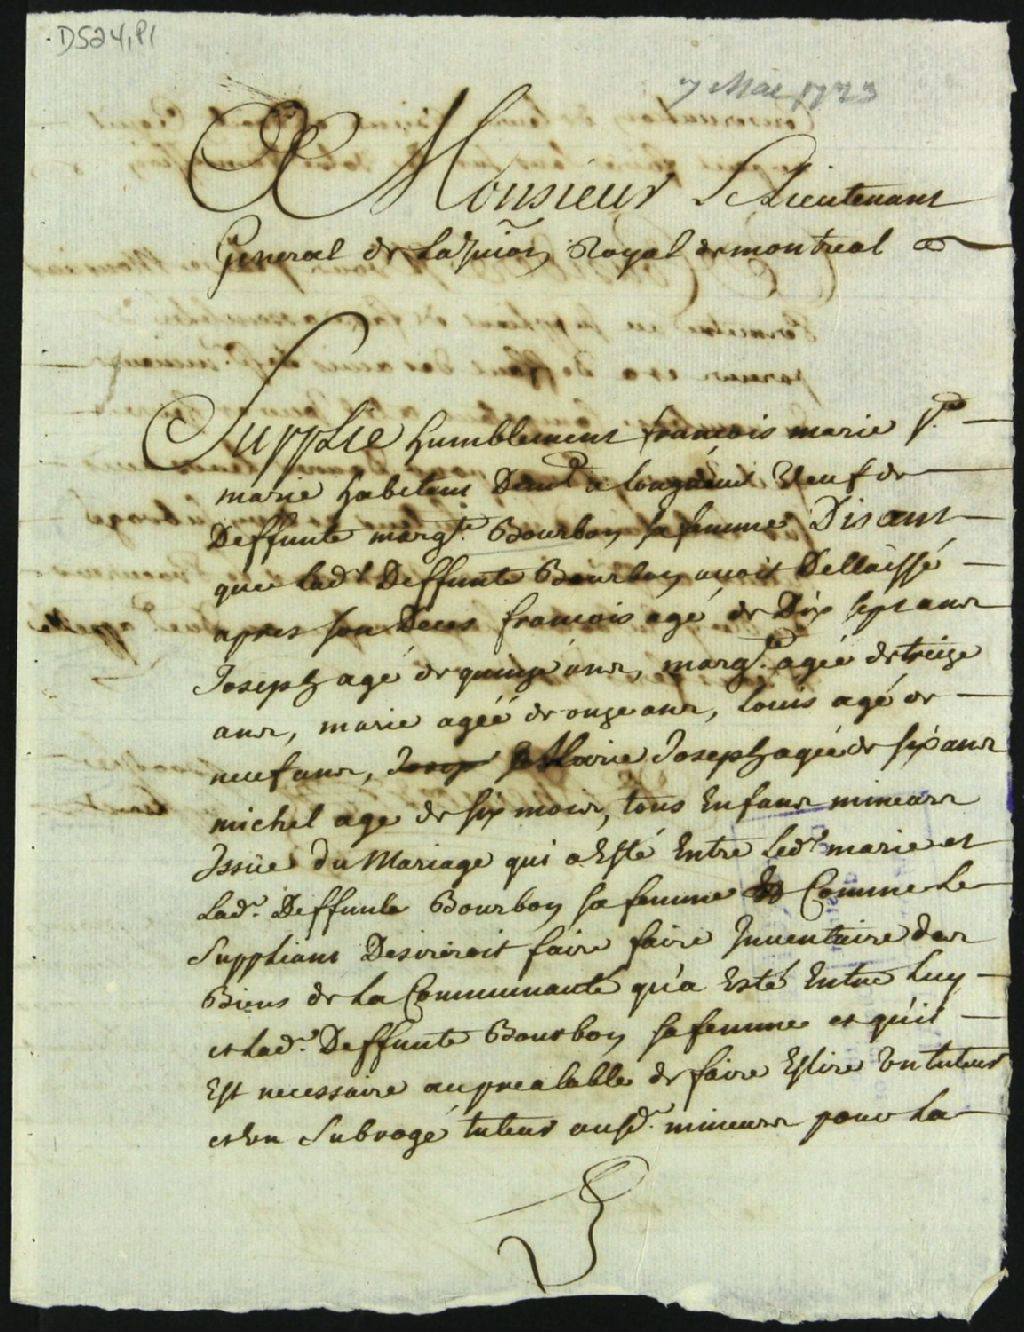 D524, P1
7 Mai 1773
A Monsieur Le Lieutenant
General de La Juion Royal de montreal
Supplie humblement francois marie
marie habitant Demt a longueuil Veuf de
Deffunte margte Bourbon sa femme Disant
que ladt Deffunte Bourbon avoit Dellaissé
apres son Deces francois agé de Dix sept ans
Joseph agé de quinze ans, margte agée de treize
ans, marie agéé de onze ans, Louis agé de
neuf ans, Marie Joseph agée de six ans
michel age de six mois, tous Enfans mineurs
Issüe du Mariage qui a Esté Entre Ledt marie et
Lade Deffunte Bourbon sa femme Comme Le
Suppliant Desireroit faire faire Inventaire des
Biens de La Communauté qu'a Esté Entre Luy
et lade Deffunte Bourbon sa femme et qu'il
Est necessaire au prealable de faire Eslire Un tuteur
et Un Subrogé tuteur ausd. mineurs pour La